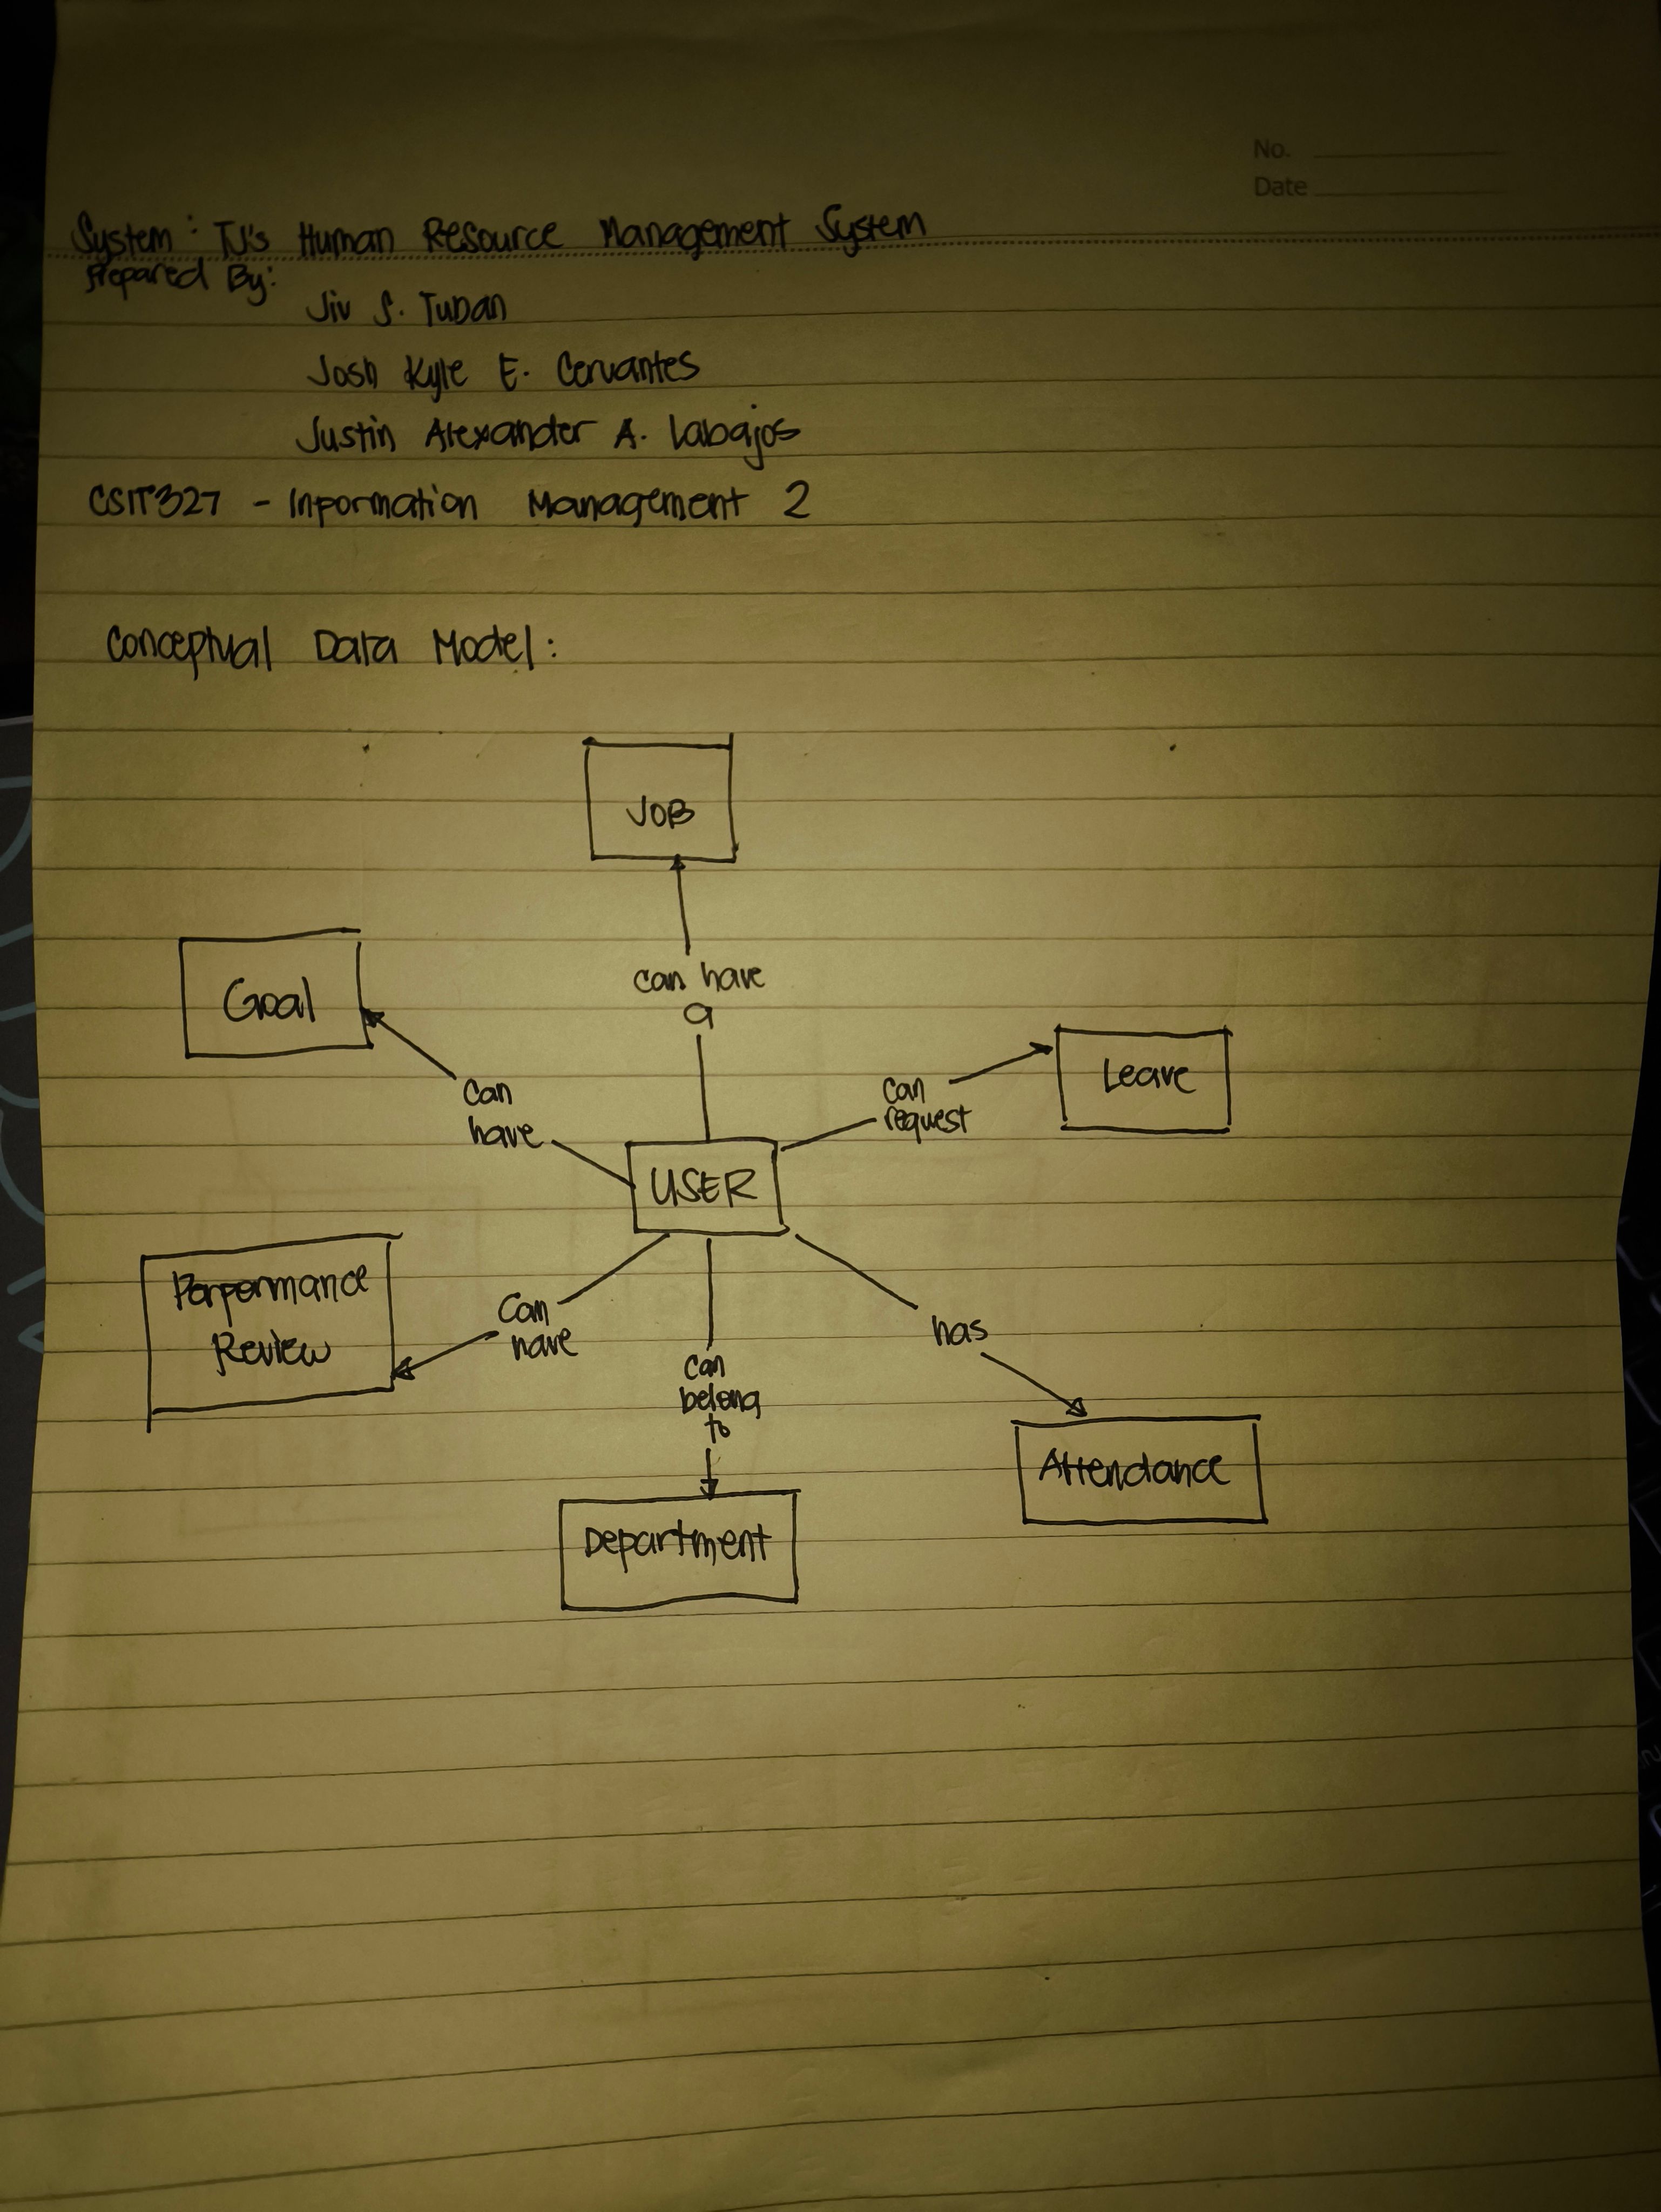 No.
Date
System: TJ's Human Resource Management System
Prepared By:
Jiv S. Tudan
Josh Kyle E. Cervantes
Justin Alexander A. Labajos
CSIT327 - Information Management 2
Conceptual Data Model:
JOB
can have
a
Goal
can
have
Leave
can
request
USER
Performance
Review
Can
have
can
belong
to
has
Attendance
Department